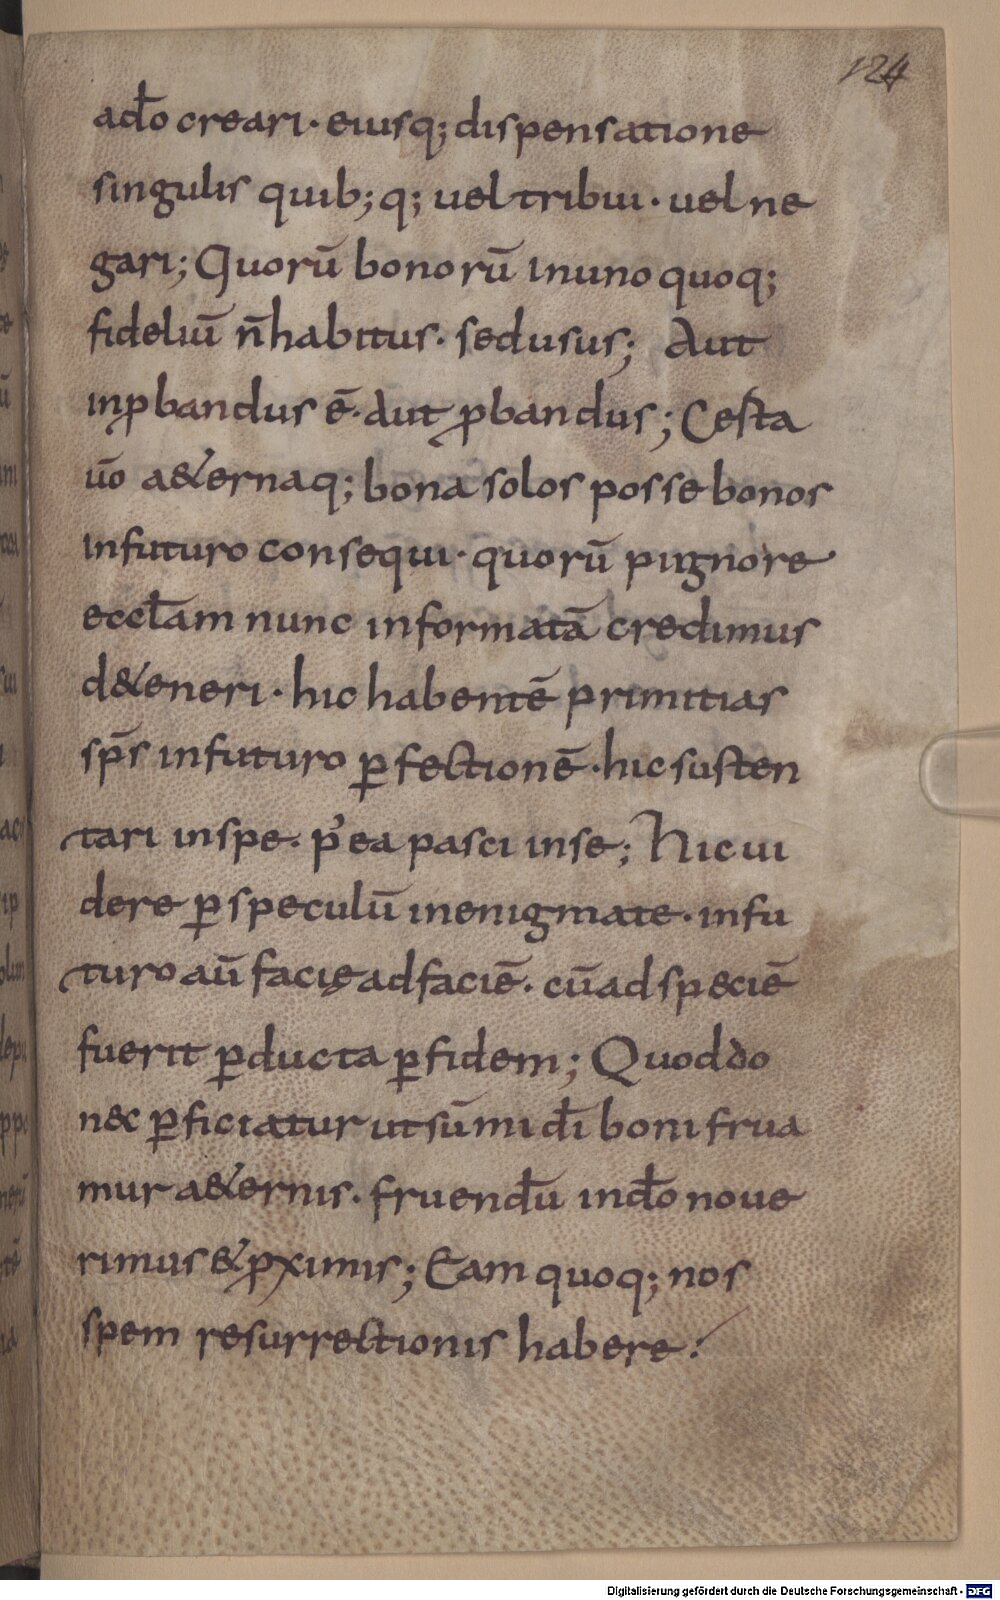 124
ad̄o creari· eiusq; dispensatione
singulis quib;q; uel tribui· uel ne
gari; Quorū bonorū inuno quoq;
fideliū n̄ habitus· sed usus; Aut
inꝓbandus ē· aut ꝓbandus; Cęsta
ūo a&ernaq; bona solos posse bonos
infuturo consequi· quorū pignore
eccl̄am nunc informatā credimus
d&eneri· hic habentē primitias
sp̄s infuturo ꝑfectionē· hic susten
tari inspe· p̓ea pasci inse; Hic ui
dere ꝑ speculū inenigmate· infu
turo aū facię adfaciē· cū ad speciē
fuerit ꝑducta ꝑ fidem; Quod do
nec ꝑficiatur ut sūmi dī boni frua
mur a&ernis· fruend̄u ind̄o noue
rimus & ꝓximis; Eam quoq; nos
spem resurrectionis habere:
Digitalisierung gefördert durch die Deutsche Forschungsgemeinschaft - DFG